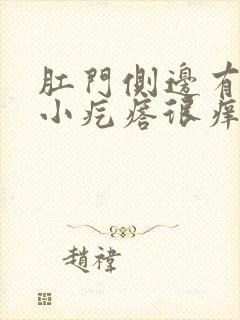 肛門側邊有
小疙瘩很痒
趙禕